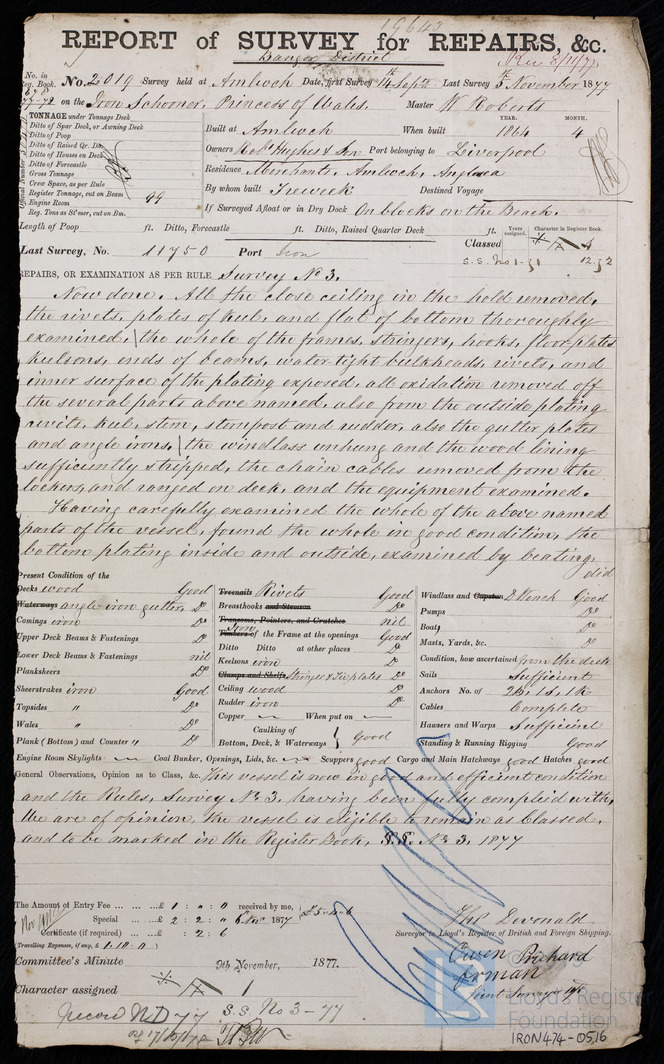 19643
REPORT of SURVEY for REPAIRS, &c.
Bangor District
Rec 8/11/77
No. in Reg. Book. No. 2019 Survey held at Amlwch Date, first Survey 14th Sept. Last Survey 5th November 1877
77-78 on the Iron Schooner, Princess of Wales. Master W. Roberts
TONNAGE under Tonnage Deck
Ditto of Spar Deck, or Awning Deck
Ditto of Poop
Ditto of Raised Qr. Dk.
Ditto of Houses on Deck
Ditto of Forecastle
Gross Tonnage
Crew Space, as per Rule
Register Tonnage, cut on Beam 99
Engine Room
Reg. Tons as St'mer, cut on Bm.
Official Number
YEAR. MONTH.
Built at Amlwch When built 1864 4
Owners Robt Hughes & Son Port belonging to Liverpool
Residence Merchants, Amlwch, Anglesea
By whom built Treweek Destined Voyage
If Surveyed Afloat or in Dry Dock On blocks on the Beach.
Length of Poop ft. Ditto, Forecastle ft. Ditto, Raised Quarter Deck ft.
Years assigned. Character in Register Book.
Last Survey, No. 11750 Port Iron Classed
S.S. No 1-
12.72
REPAIRS, OR EXAMINATION AS PER RULE, Survey No 3.
Now done. All the close ceiling in the hold removed,
the rivets, plates of keel, and flat of bottom thoroughly
examined, the whole of the frames, stringers, hooks, floorplates
keelsons, ends of beams, water-tight bulkheads, rivets, and
inner surface of the plating exposed, all oxidation removed off
the several parts above named, also from the outside plating
rivets, keel, stem, sternpost and rudder, also the gutter plates
and angle irons, the windlass unhung and the wood lining
sufficiently stripped, the chain cables removed from the
lockers, and ranged on deck, and the equipment examined.
Having carefully examined the whole of the above named
parts of the vessel, found the whole in good condition, the
bottom plating inside and outside, examined by beating,
did
Present Condition of the
Decks wood Good
Waterways angle iron gutter, Do
Comings iron Do
Upper Deck Beams & Fastenings Do
Lower Deck Beams & Fastenings nil
Planksheers Do
Sheerstrakes iron Good
Topsides " Do
Wales " Do
Plank (Bottom) and Counter " Do
Treenails Rivets Good
Breasthooks and Stemson Do
Transoms, Pointers, and Crutches nil
Iron
Timbers of the Frame at the openings Good
Ditto Ditto at other places Do
Keelsons iron Do
Clamps and Shelfs Stringer & Tieplates Do
Ceiling wood Do
Rudder iron Do
Copper When put on
Caulking of
Bottom, Deck, & Waterways } Good
Windlass and Capstan & Winch Good
Pumps Do
Boat, Do
Masts, Yards, &c. Do
Condition, how ascertained from the deck
Sails Sufficient
Anchors No. of 2B, 1S, 1K
Cables Complete
Hawsers and Warps Sufficient
Standing & Running Rigging Good
Engine Room Skylights Coal Bunker, Openings, Lids, &c. Scuppers good Cargo and Main Hatchways good Hatches good
General Observations, Opinion as to Class, &c. This vessel is now in good and efficient condition
and the Rules, Survey No 3, having been fully complied with,
We are of opinion, the vessel is eligible to remain as Classed,
and to be marked in the Register Book, S.S. No 3, 1877
The Amount of Entry Fee ... £ 1 : " : 0 received by me,
Special ... £ 2 : 2 : " 1877
Certificate (if required) .. £ : 2 : 6
(Travelling Expenses, if any, £ 1.10.0)
Thos Devonald
Surveyor to Lloyd's Register of British and Foreign Shipping.
Owen Prichard
Joint Surveyor
Committee's Minute 9th November, 1877.
Character assigned
Record ND 77 S.S. No 3-77
© 2020
Lloyd's Register
Foundation
IRON474-0516